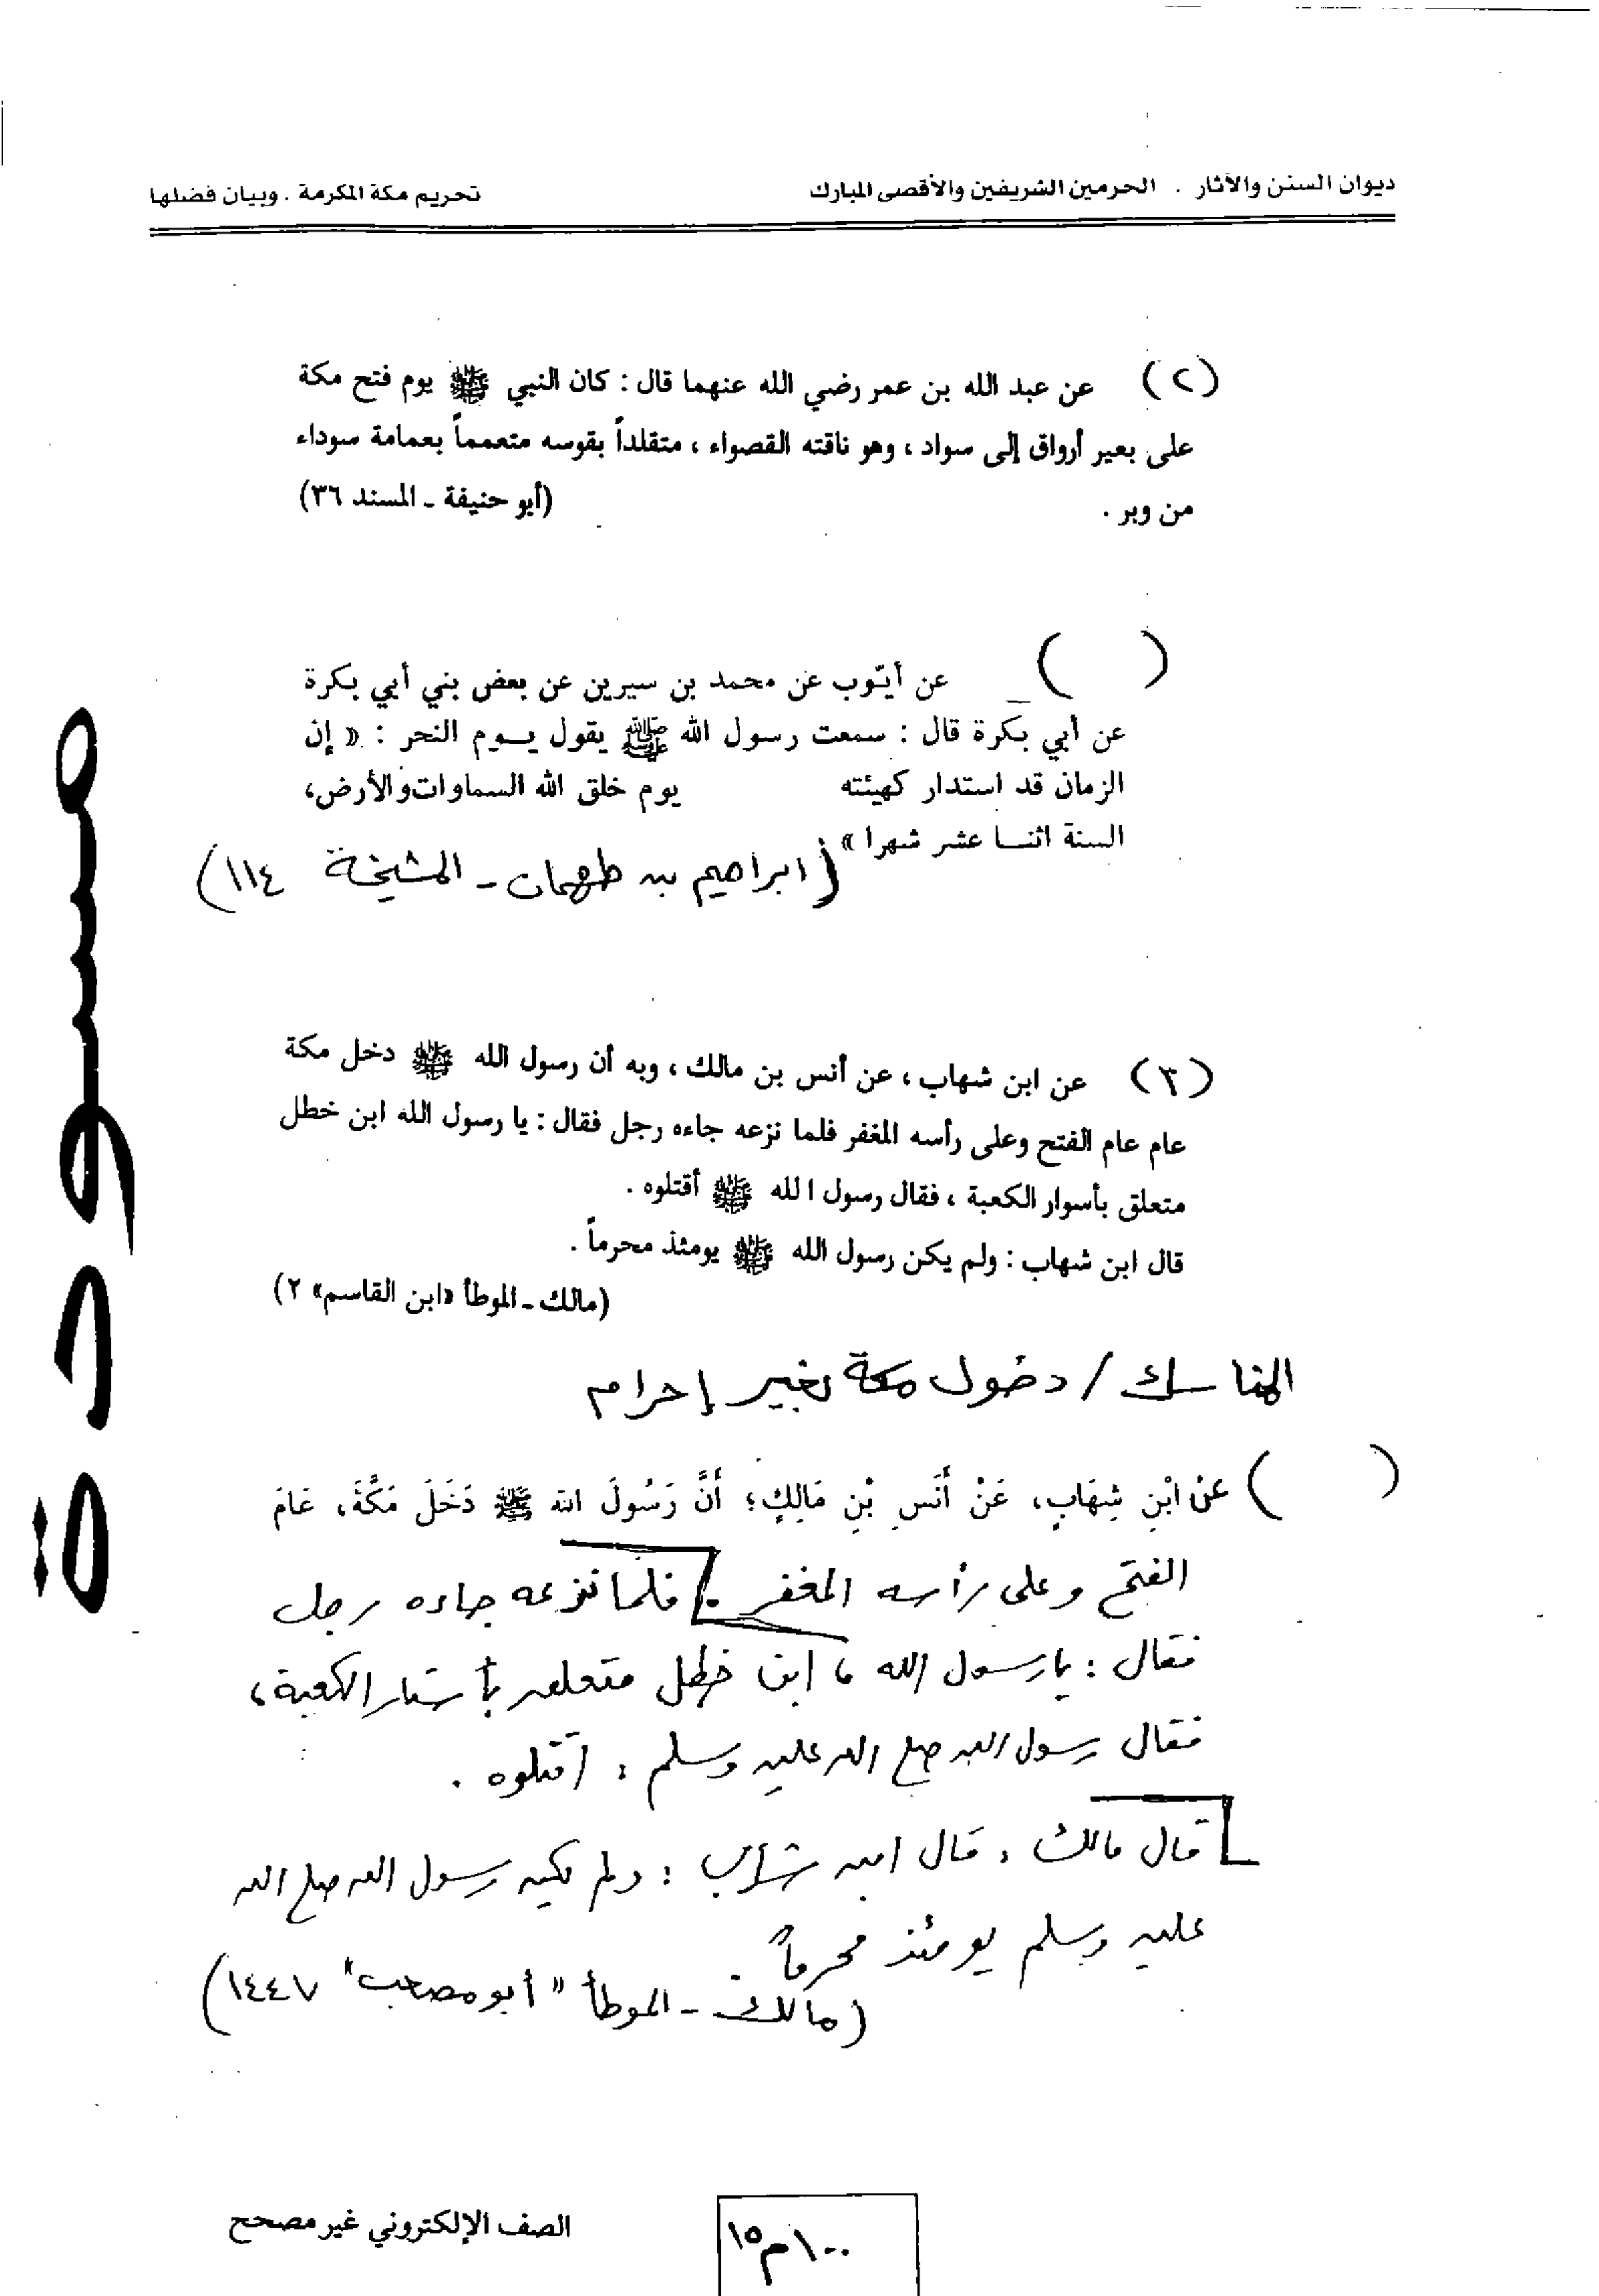 ديوان السنن والآثار . الحرمين الشريفين والأقصى المبارك
تحريم مكة المكرمة . وبيان فضلها
(٢) عن عبد الله بن عمر رضي الله عنهما قال : كان النبي ﷺ يوم فتح مكة
على بعير أرواق إلى سواد ، وهو ناقته القصواء ، متقلداً بقوسه متعمماً بعمامة سوداء
من وبر .
(أبو حنيفة ـ المسند ٣٦)
( ) عن أيّوب عن محمد بن سيرين عن بعض بني أبي بكرة
عن أبي بكرة قال : سمعت رسول الله ﷺ يقول يوم النحر : « إن
الزمان قد استدار كهيئته يوم خلق الله السماوات والأرض،
السنة اثنا عشر شهرا »
(ابراهيم بن طهمان ـ المشيخة ١١٤)
(٣) عن ابن شهاب ، عن أنس بن مالك ، وبه أن رسول الله ﷺ دخل مكة
عام عام الفتح وعلى رأسه المغفر فلما نزعه جاءه رجل فقال : يا رسول الله ابن خطل
متعلق بأسوار الكعبة ، فقال رسول الله ﷺ أقتلوه .
قال ابن شهاب : ولم يكن رسول الله ﷺ يومئذ محرماً .
(مالك ـ الموطأ «ابن القاسم» ٢)
المناسك / دخول مكة بغير إحرام
( ) عَنْ ابْنِ شِهَابٍ، عَنْ أَنَسِ بْنِ مَالِكٍ؛ أَنَّ رَسُولَ الله ﷺ دَخَلَ مَكَّةَ، عَامَ
الفتح وعلى رأسه المغفر . فلما نزعه جاءه رجل
فقال : يا رسول الله ، ابن خطل متعلق بأستار الكعبة ،
فقال رسول الله صلى الله عليه وسلم : اقتلوه .
قال مالك : قال ابن شهاب : ولم يكن رسول الله صلى الله
عليه وسلم يومئذ محرماً .
(مالك ـ الموطأ " أبو مصعب " ١٤٤٧)
مسودة
الصف الإلكتروني غير مصحح
١٠٠م١٥